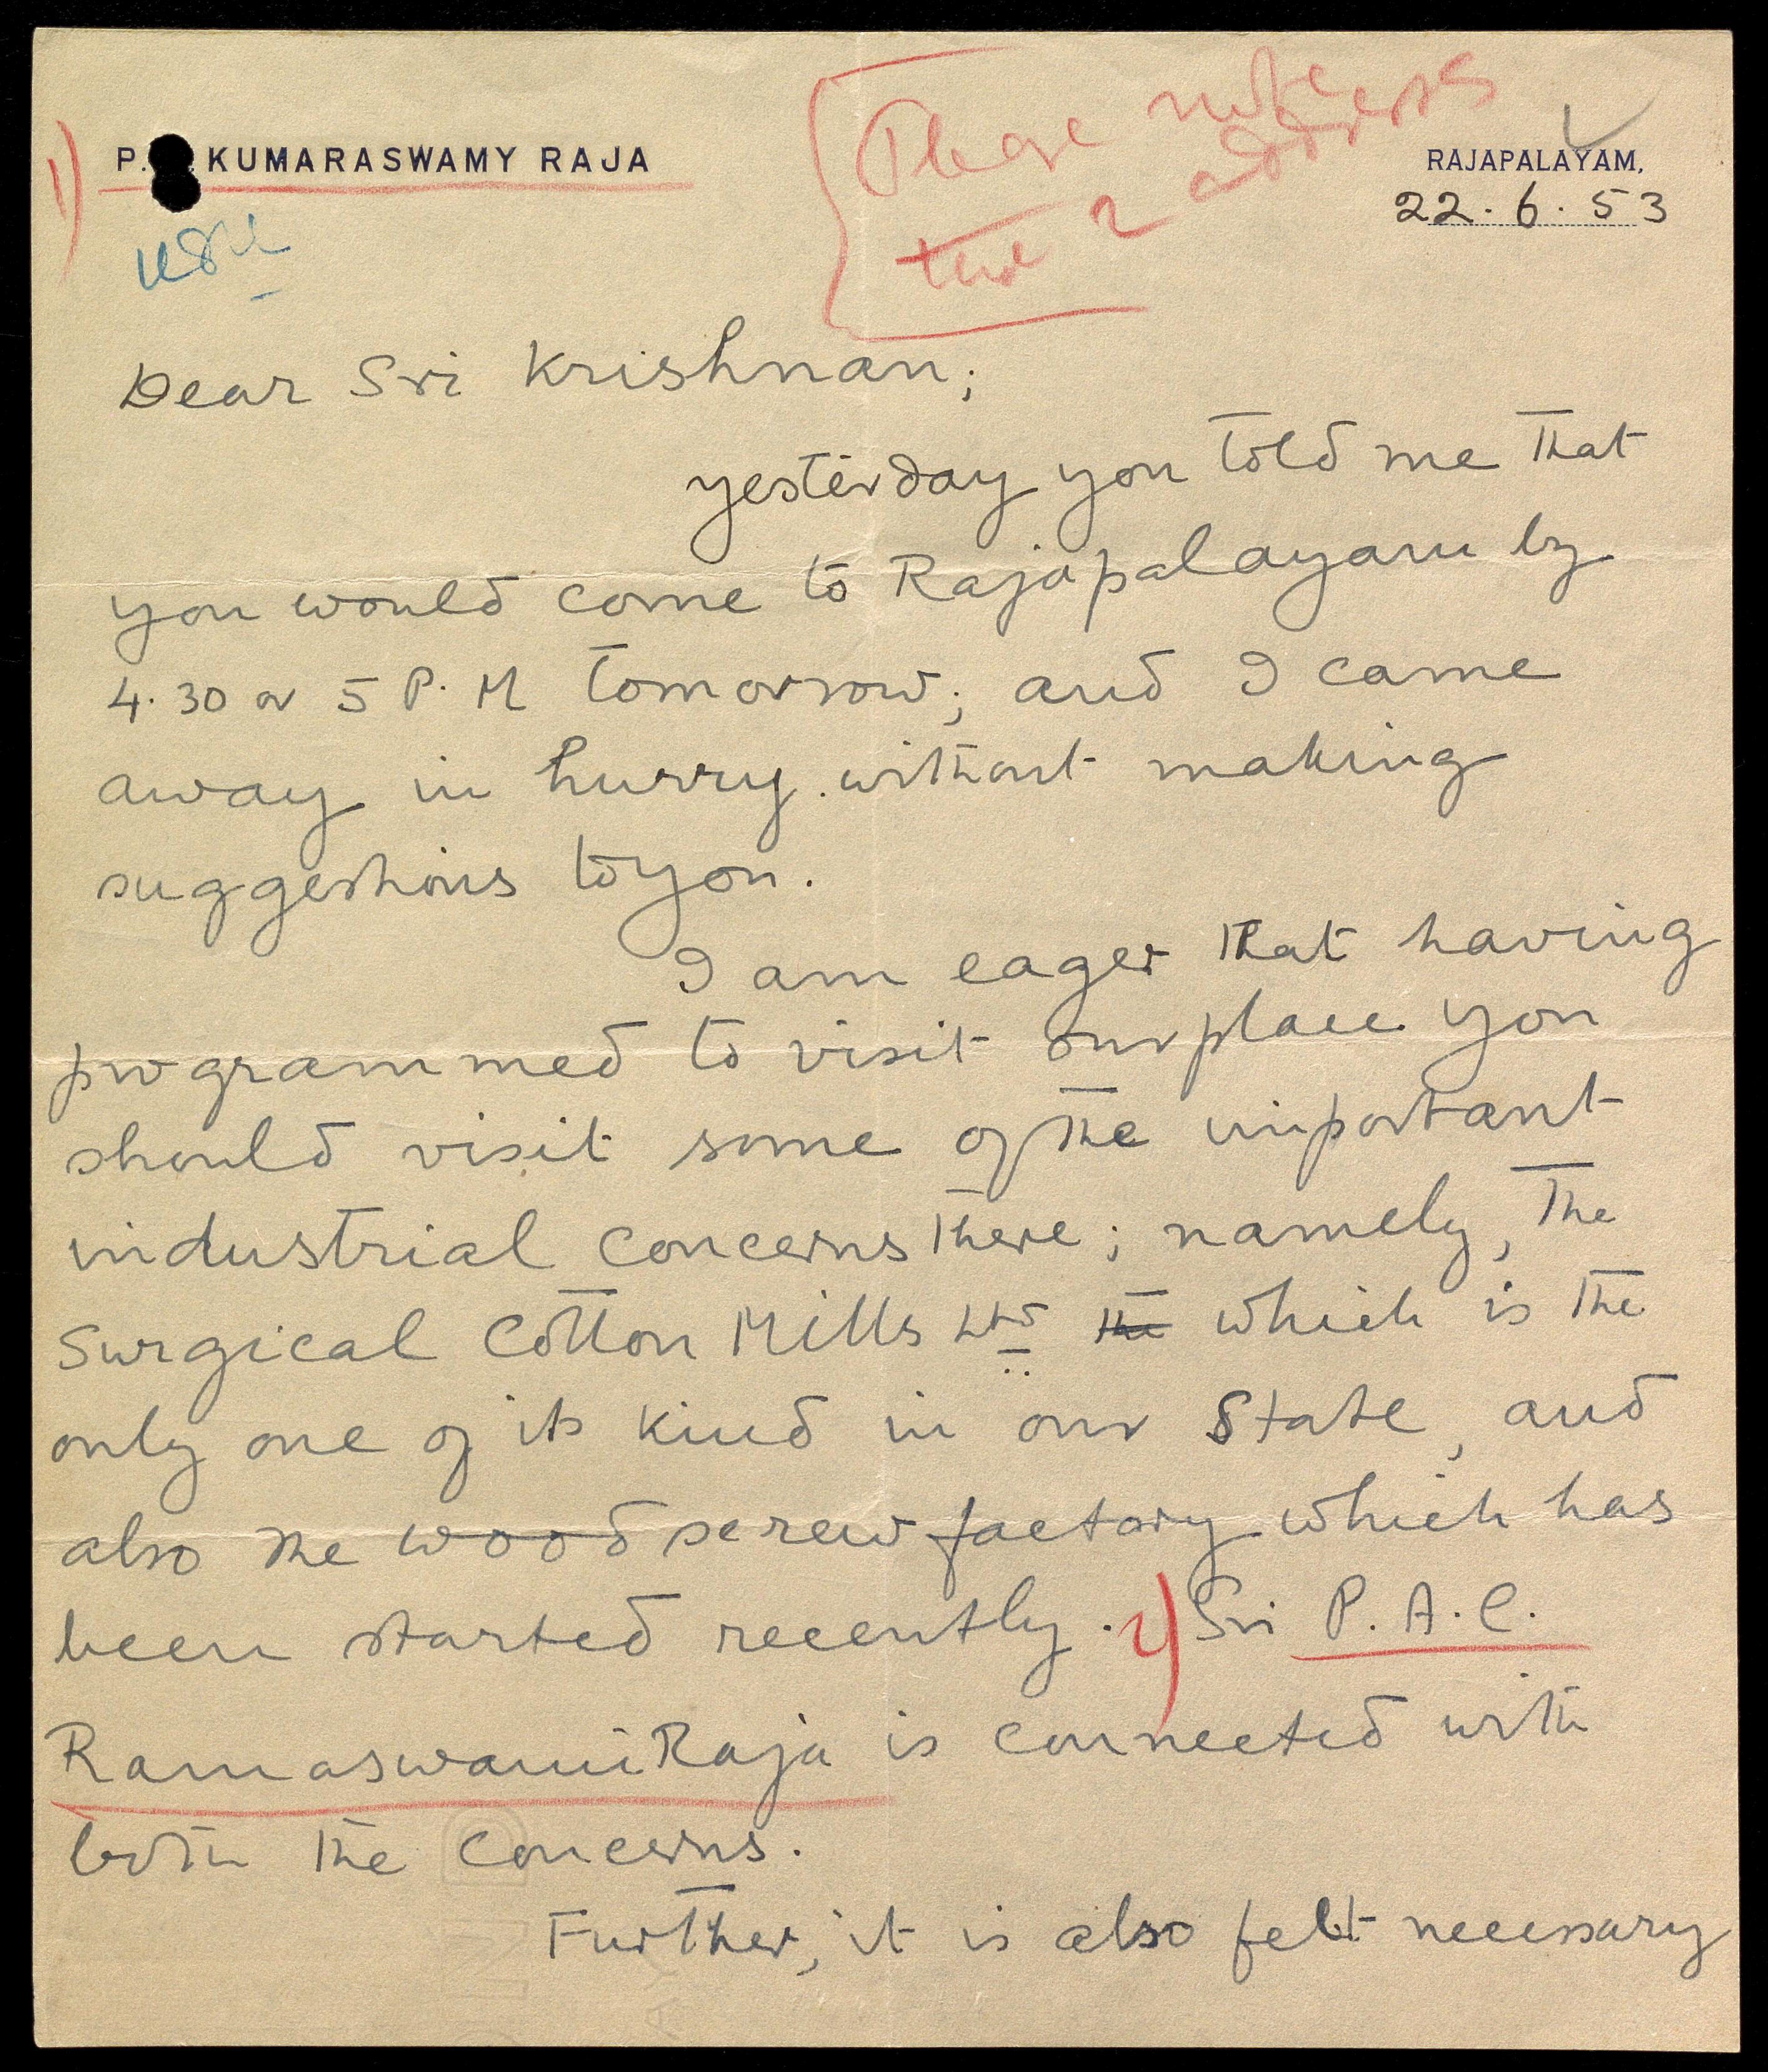 1) P. KUMARASWAMY RAJA
RAJAPALAYAM,
22.6.53
Please note
the 2 address
Dear Sri Krishnan;
yesterday you told me that
you would come to Rajapalayam by
4.30 or 5 P.M tomorrow; and I came
away in hurry without making
suggestions to you.
I am eager that having
programmed to visit our place you
should visit some of the important
industrial concerns there; namely, the
Surgical Cotton Mills Ltd the which is the
only one of its kind in our State, and
also the wood screw factory which has
been started recently. 2) Sri P.A.C.
Ramaswami Raja is connected with
both the concerns.
Further, it is also felt necessary